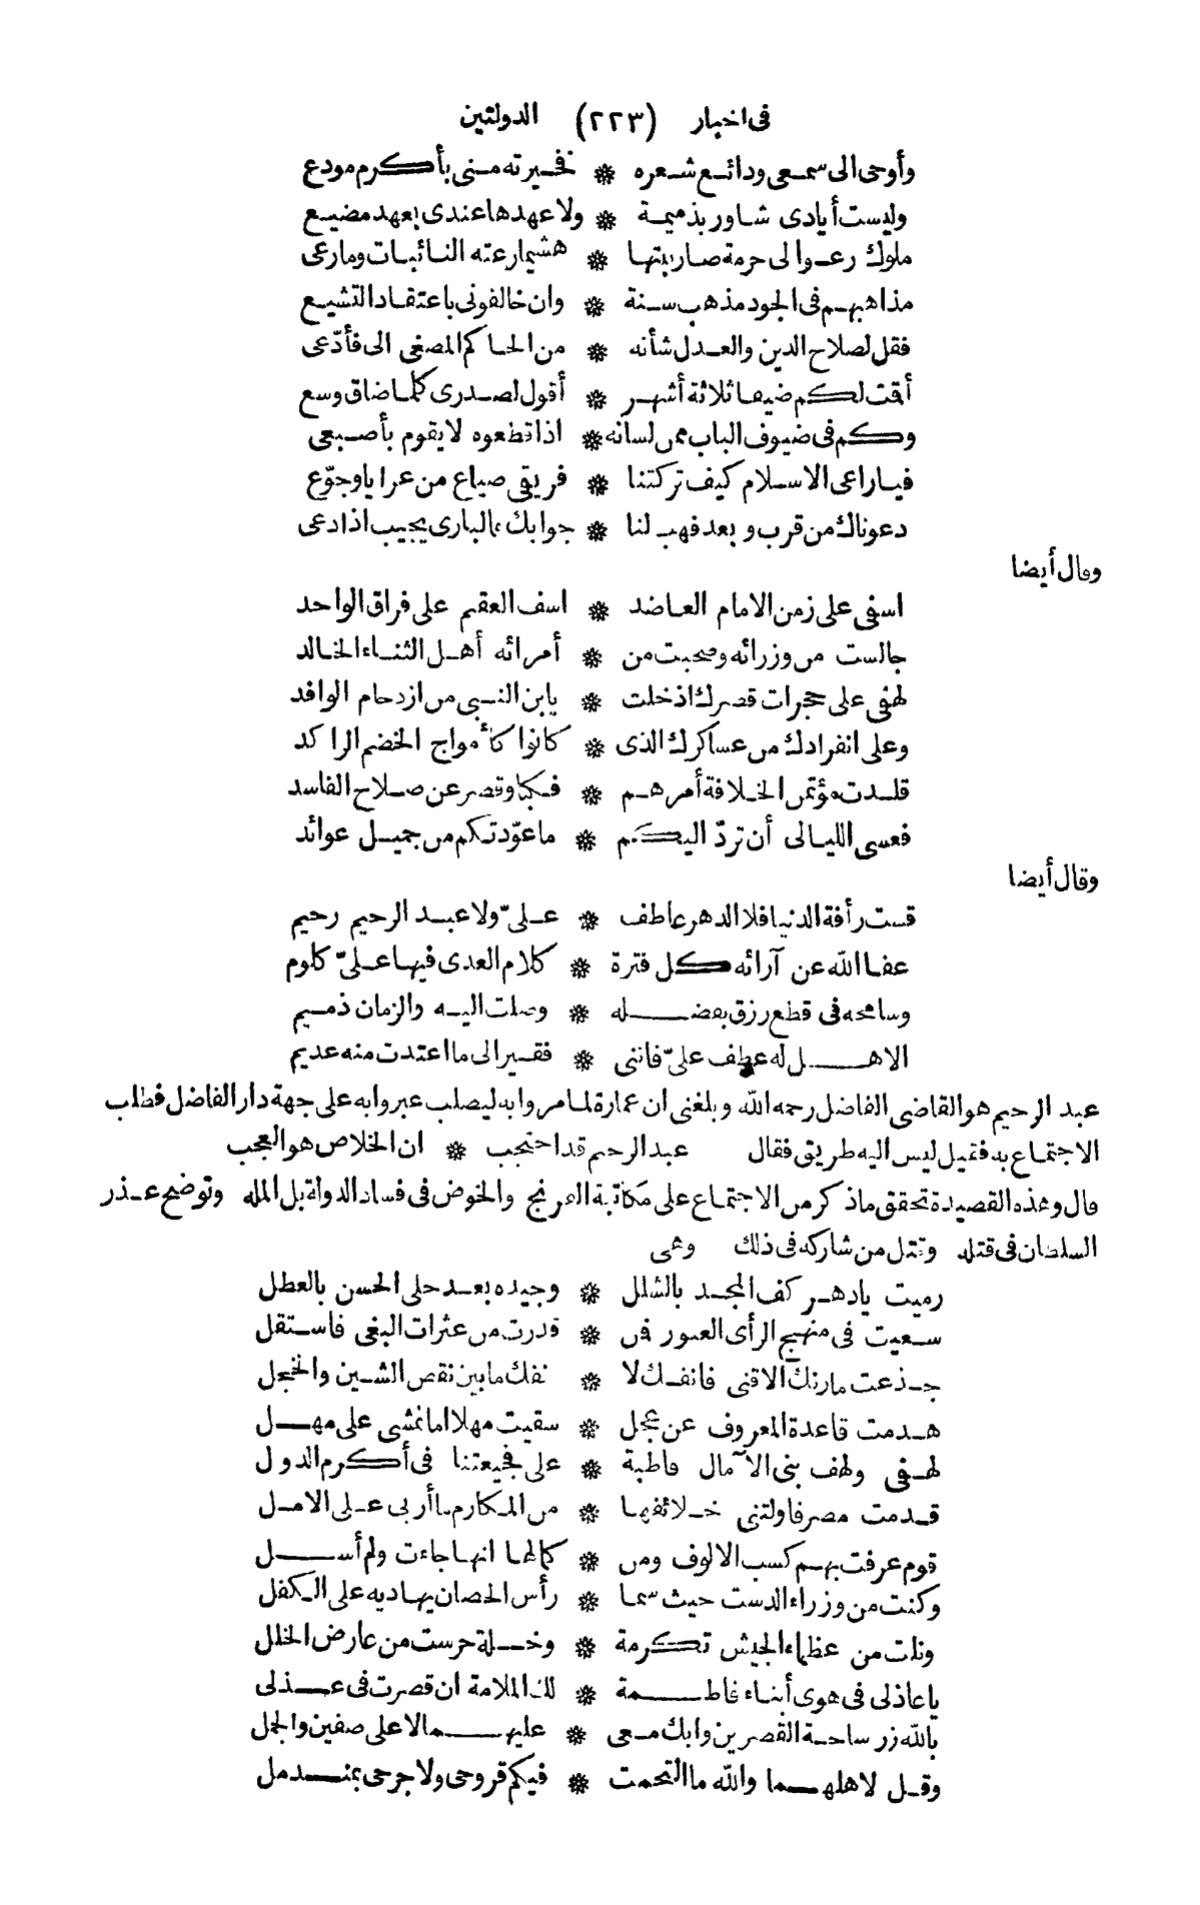 فى اخبار (٢٢٣) الدولتين
وأوحى الى سمعى ودائع شعره * فخيرته منى بأكرم مودع
وليست أيادى شاور بذميمة * ولا عهدها عندى بعهد مضيع
ملوك رعوا لى حرمة صار نبتها * هشيما رعته النائبات وما رعى
مذاهبهم فى الجود مذهب سنة * وان خالفونى باعتقاد التشيع
فقل لصلاح الدين والعدل شأنه * من الحاكم المصغى الى فأدّعى
أقمت لكم ضيفا ثلاثة أشهر * أقول لصدرى كلما ضاق وسع
وكم فى ضيوف الباب ممن لسانه * اذا قطعوه لا يقوم بأصبعى
فيا راعى الاسلام كيف تركتنا * فريقى ضياع من عرايا وجوّع
دعوناك من قرب وبعد فهب لنا * جوابك فالبارى يجيب اذا دعى
وقال أيضا
اسفى على زمن الامام العاضد * اسف العقيم على فراق الواحد
جالست من وزرائه وصحبت من * أمرائه أهل الثناء الخالد
لهفى على حجرات قصرك اذ خلت * يا بن النبى من ازدحام الوافد
وعلى انفرادك من عساكرك الذى * كانوا كأمواج الخضم الراكد
قلدت مؤتمن الخلافة أمرهم * فكبا وقصر عن صلاح الفاسد
فعسى الليالى أن تردّ اليكم * ما عوّدتكم من جميل عوائد
وقال أيضا
قست رأفة الدنيا فلا الدهر عاطف * علىّ ولا عبد الرحيم رحيم
عفا الله عن آرائه كل فترة * كلام العدى فيها علىّ كلوم
وسامحه فى قطع رزق بفضله * وصلت اليه والزمان ذميم
الا هل له عطف علىّ فاننى * فقير الى ما اعتدت منه عديم
عبد الرحيم هو القاضى الفاضل رحمه الله وبلغنى ان عمارة لما مروا به ليصلب عبروا به على جهة دار الفاضل فطلب
الاجتماع به فقيل ليس اليه طريق فقال عبد الرحيم قد احتجب * ان الخلاص هو العجب
قال وهذه القصيدة تحقق ما ذكر من الاجتماع على مكاتبة الفرنج والخوض فى فساد الدولة بل الملة وتوضح عذر
السلطان فى قتله وقتل من شاركه فى ذلك وهى
رميت يا دهر كف المجد بالشلل * وجيده بعد حلى الحسن بالعطل
سعيت فى منهج الرأى العثور فان * قدرت من عثرات البغى فاستقل
جذعت مارنك الاقنى فانفك لا * ينفك ما بين نقص الشين والخجل
هدمت قاعدة المعروف عن عجل * سقيت مهلا اما تمشى على مهل
لهفى ولهف بنى الآمال قاطبة * على فجيعتنا فى أكرم الدول
قدمت مصر فاولتنى خلائفها * من المكارم ما أربى على الامل
قوم عرفت بهم كسب الالوف ومن * كمالها انها جاءت ولم أسل
وكنت من وزراء الدست حيث سما * رأس الحصان يهاديه على الكفل
ونلت من عظماء الجيش تكرمة * وخلة حرست من عارض الخلل
يا عاذلى فى هوى أبناء فاطمة * لك الملامة ان قصرت فى عذلى
بالله زر ساحة القصرين وابك معى * عليهما لا على صفين والجمل
وقل لاهلهما والله ما التحمت * فيكم قروحى ولا جرحى بمندمل